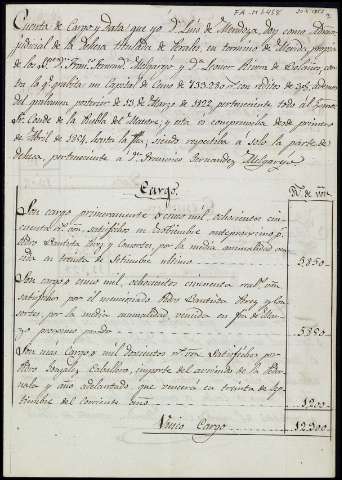 Cuenta de Cargo y Data que yo Dn. Luis de Mendoza, doy como Admor.
judicial de la dehesa titulada de Perales, en termino de Merida, propia
de los Sres. Dn. Franco. Fernandz. Melgarejo y Da. Leonor Rivera de
ta la qe. gravita un Capital de Censo de 733.330 rs. con reditos de
del gravamen posterior de 13 de Marzo de 1922 perteneciente todo al Exmo.
Sr. Conde de la Puebla del Maestre; y esta es comprensiva desde primero
de Abril de 1854, hasta la fha; siendo respectiva á solo la parte de
dehesa, perteneciente a Dn. Francisco Fernandez Melgarejo
Cargo.
Rs. de von.
Son cargo primeramente cinco mil, ochocientos cin-
cuenta rs. von. satisfhos. en Octubre anteproximo pr.
Pedro Bautista Perez y Consortes por la media anualidad ven-
cida en treinta de Setiembre ultimo 5.850
Son cargo cinco mil, ochocientos cincuenta rs. von.
satisfhos. por el mencionado Pedro Bautista Perez y Con-
sortes, por la media anualidad, vencida en fin de Mar-
zo proximo pasado 5.850
Son mas Cargo mil doscientos rs. von. Satisfhos. por
Pedro Gonzalez Caballero, importe del arriendo de la
y año adelantado, que vencerá en treinta de Se-
tiembre del corriente año 1.200
Unico Cargo 12.900